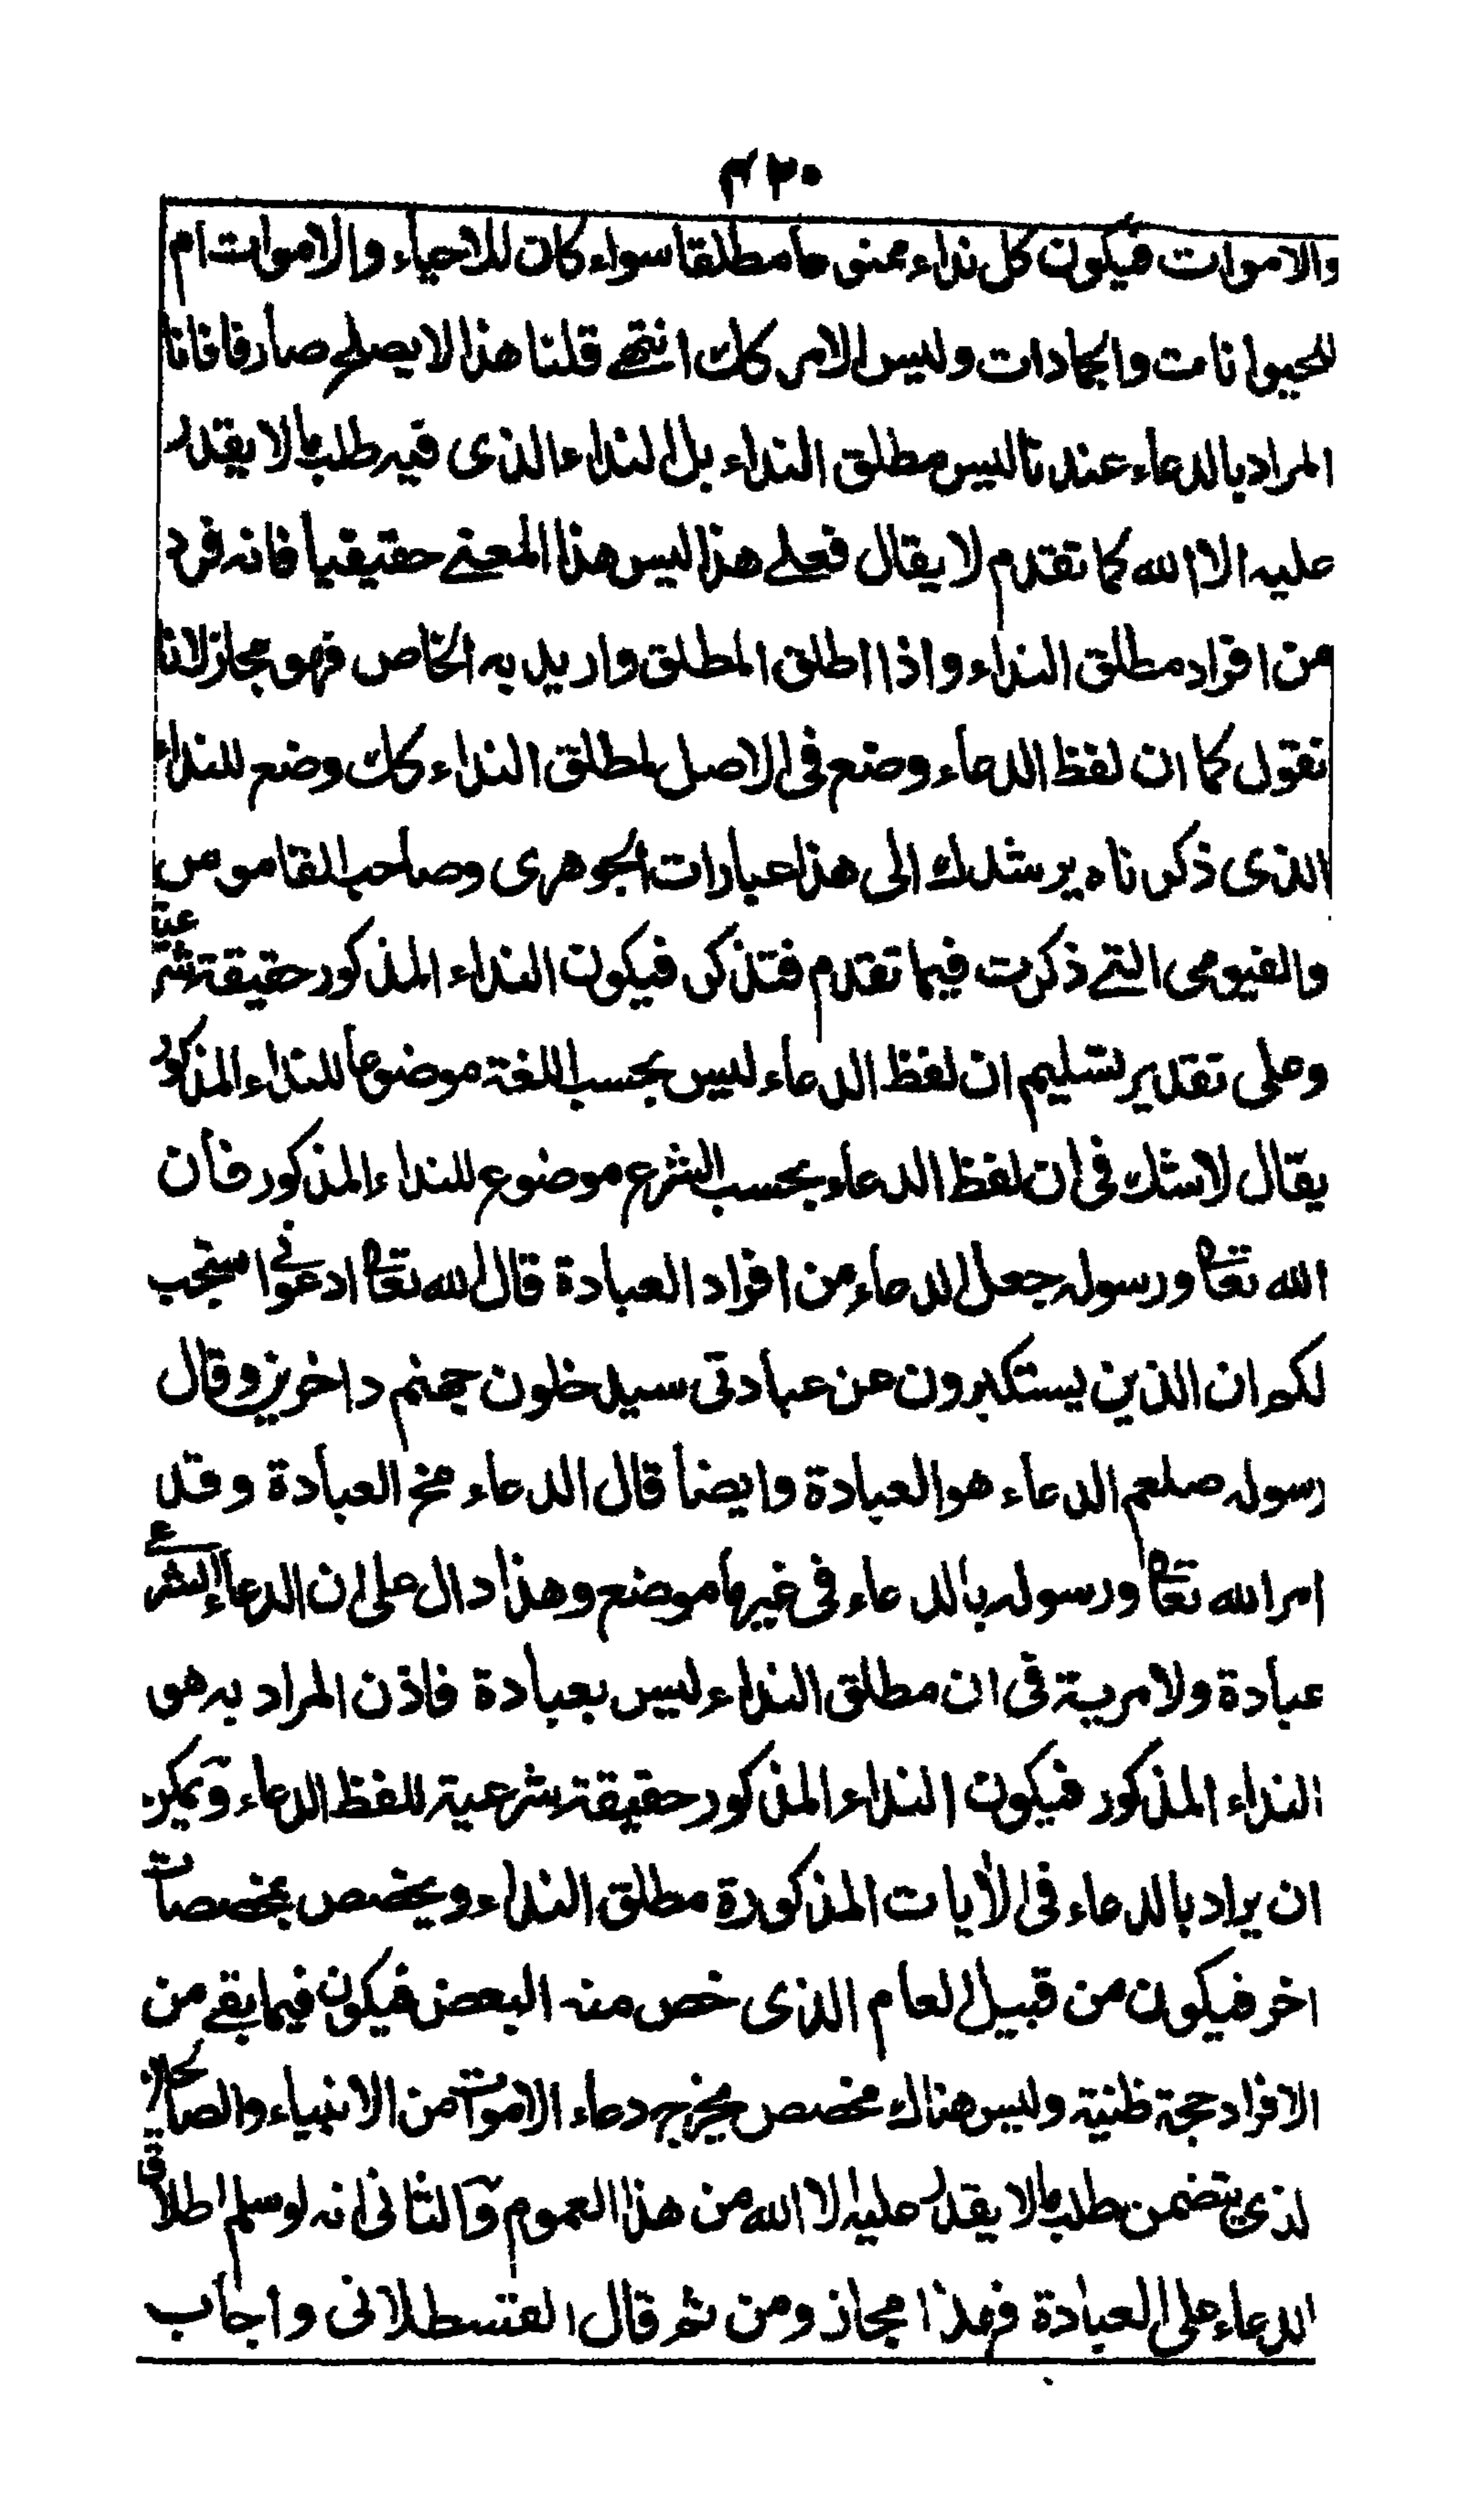 ٤٢٠
والاموات فيكون كل نداء ممنوعا مطلقا سواء كان للاحياء والاموات ام
للحيوانات والجمادات وليس الامر كك انتهى قلنا هذا لا يصلح صارفا فانا
المراد بالدعاء عندنا ليس مطلق النداء بل النداء الذى فيه طلب ما لا يقدر
عليه الا الله كما تقدم لا يقال فعلى هذا ليس هذا المعنى حقيقيا فانه فرد
من افراد مطلق النداء واذا اطلق المطلق واريد به الخاص فهو مجاز لانا
نقول كما ان لفظ الدعاء وضع فى الاصل لمطلق النداء كك وضع للنداء
الذى ذكرناه يرشدك الى هذا عبارات الجوهرى وصاحب القاموس
والفيومى التى ذكرت فيما تقدم فتذكر فيكون النداء المذكور حقيقة شرعية
وعلى تقدير تسليم ان لفظ الدعاء ليس بحسب اللغة موضوعا للنداء المذكور
يقال لا شك فى ان لفظ الدعاء بحسب الشرع موضوع للنداء المذكور فان
الله تعا ورسوله جعل الدعاء من افراد العبادة قال الله تعا ادعونى استجب
لكم ان الذين يستكبرون عن عبادتى سيدخلون جهنم داخرين وقال
رسوله صلعم الدعاء هو العبادة وايضا قال الدعاء مخ العبادة وقد
امر الله تعا ورسوله بالدعاء فى غير ما موضع وهذا دال على ان الدعاء الشرعى
عبادة ولا مرية فى ان مطلق النداء ليس بعبادة فاذن المراد به هو
النداء المذكور فيكون النداء المذكور حقيقة شرعية للفظ الدعاء ويمكن
ان يراد بالدعاء فى الأيات المذكورة مطلق النداء ويخصص بمخصصات
اخر فيكون من قبيل العام الذى خص منه البعض فيكون فيما بقى من
الافراد حجة ظنية وليس هناك مخصص يخرج دعاء الاموات من الانبياء والصالحين
لذى يتضمن طلب ما لا يقدر عليه الا الله من هذا العموم والثانى انه لو سلم اطلاق
الدعاء على العبادة فهذا مجاز ومن ثم قال القسطلانى واجاب